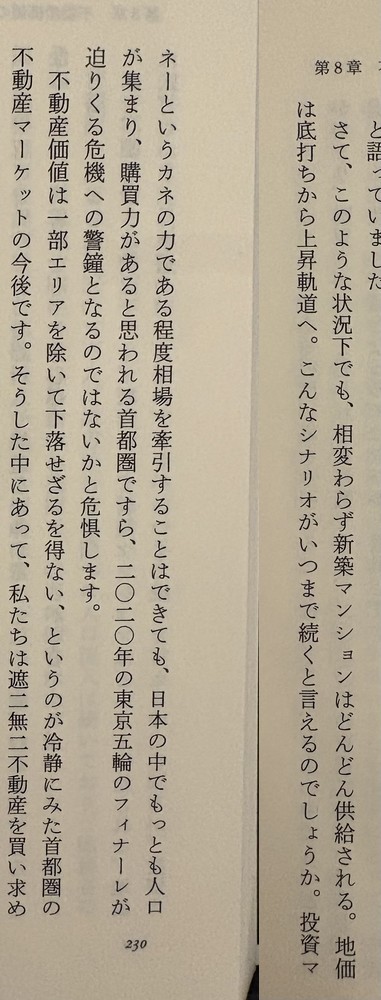 第8章
と語っていました
さて、このような状況下でも、相変わらず新築マンションはどんどん供給される。地価
は底打ちから上昇軌道へ。こんなシナリオがいつまで続くと言えるのでしょうか。投資マ
ネーというカネの力である程度相場を牽引することはできても、日本の中でもっとも人口
が集まり、購買力があると思われる首都圏ですら、二〇二〇年の東京五輪のフィナーレが
迫りくる危機への警鐘となるのではないかと危惧します。
不動産価値は一部エリアを除いて下落せざるを得ない、というのが冷静にみた首都圏の
不動産マーケットの今後です。そうした中にあって、私たちは遮二無二不動産を買い求め
230